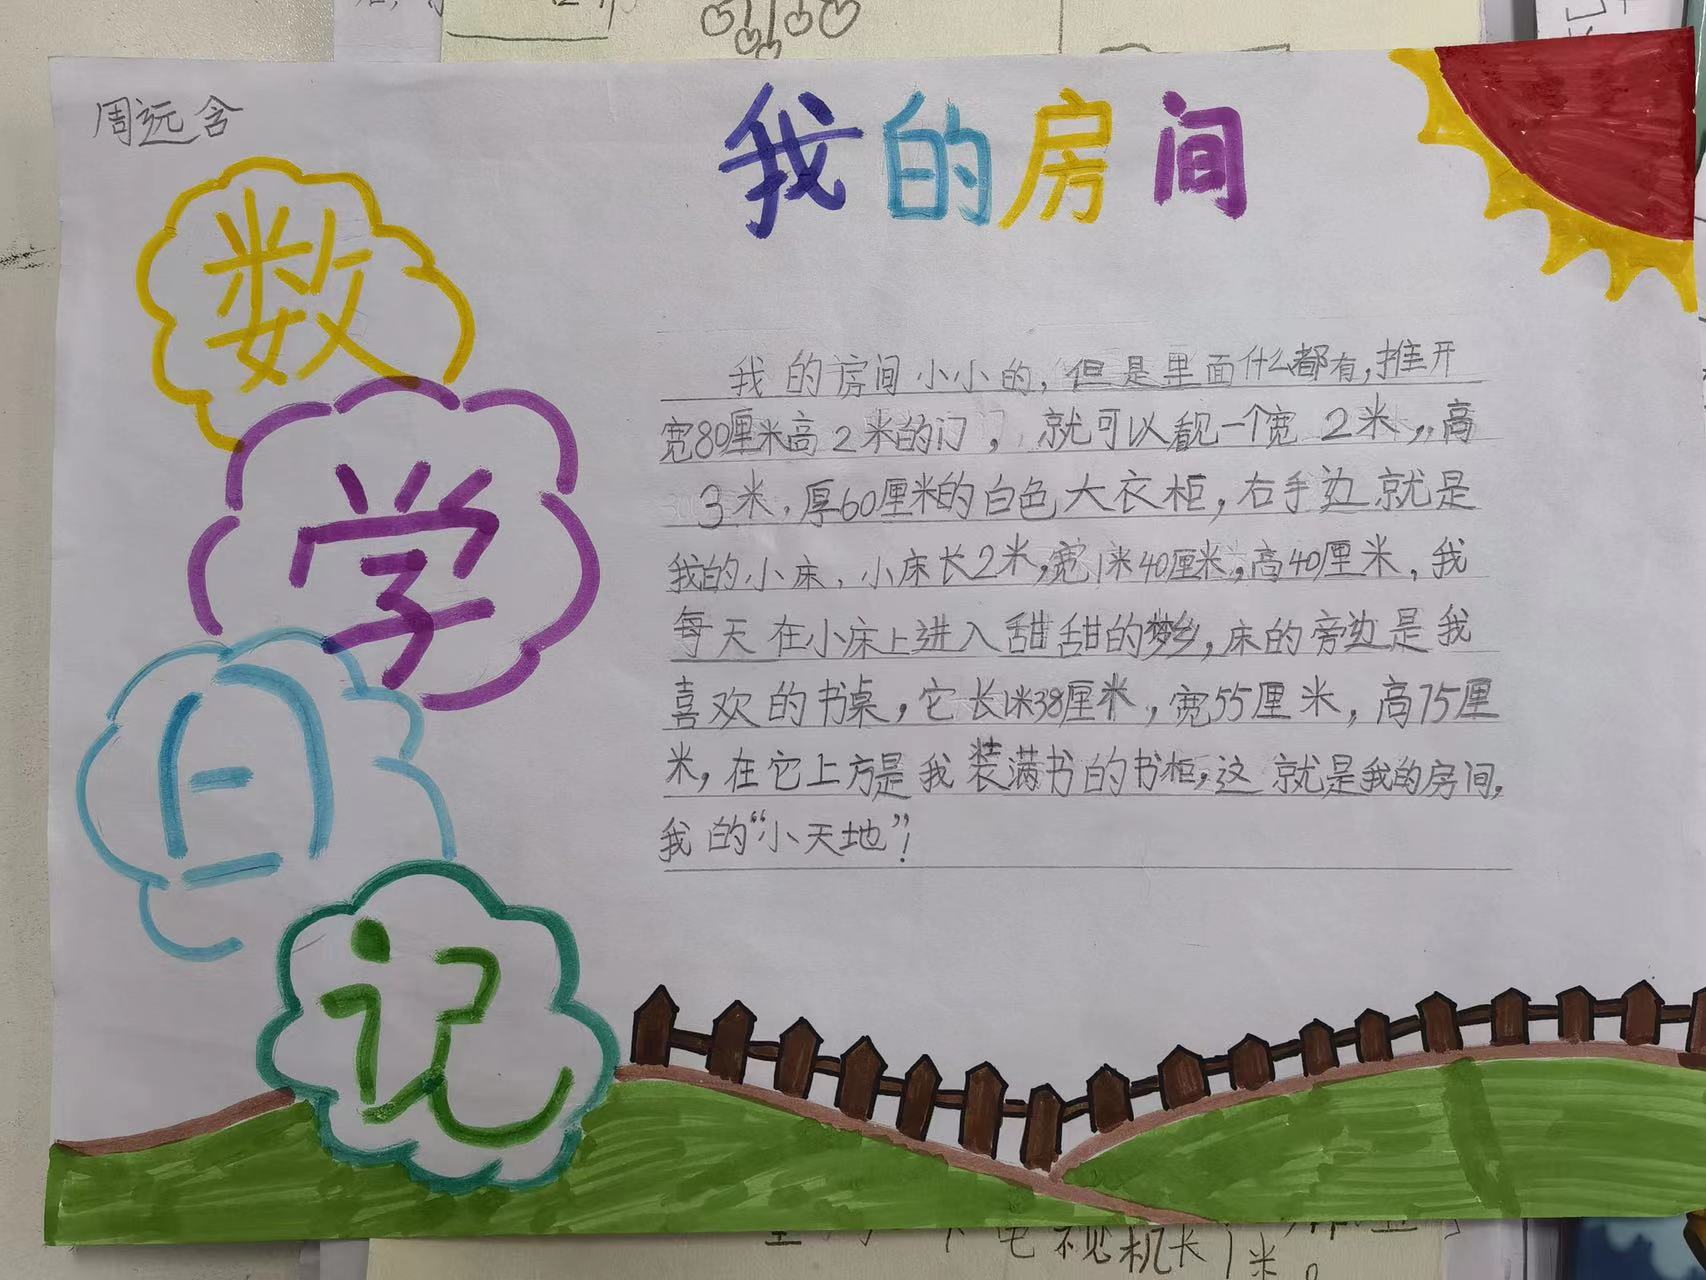 周远含
我的房间
数
学
日
记
我的房间小小的，但是里面什么都有，推开
宽80厘米高2米的门，就可以看见一个宽2米，高
3米，厚60厘米的白色大衣柜，右手边就是
我的小床，小床长2米，宽1米40厘米，高40厘米，我
每天在小床上进入甜甜的梦乡，床的旁边是我
喜欢的书桌，它长1米38厘米，宽55厘米，高75厘
米，在它上方是我装满书的书柜，这就是我的房间，
我的“小天地”！
电视机长1米。